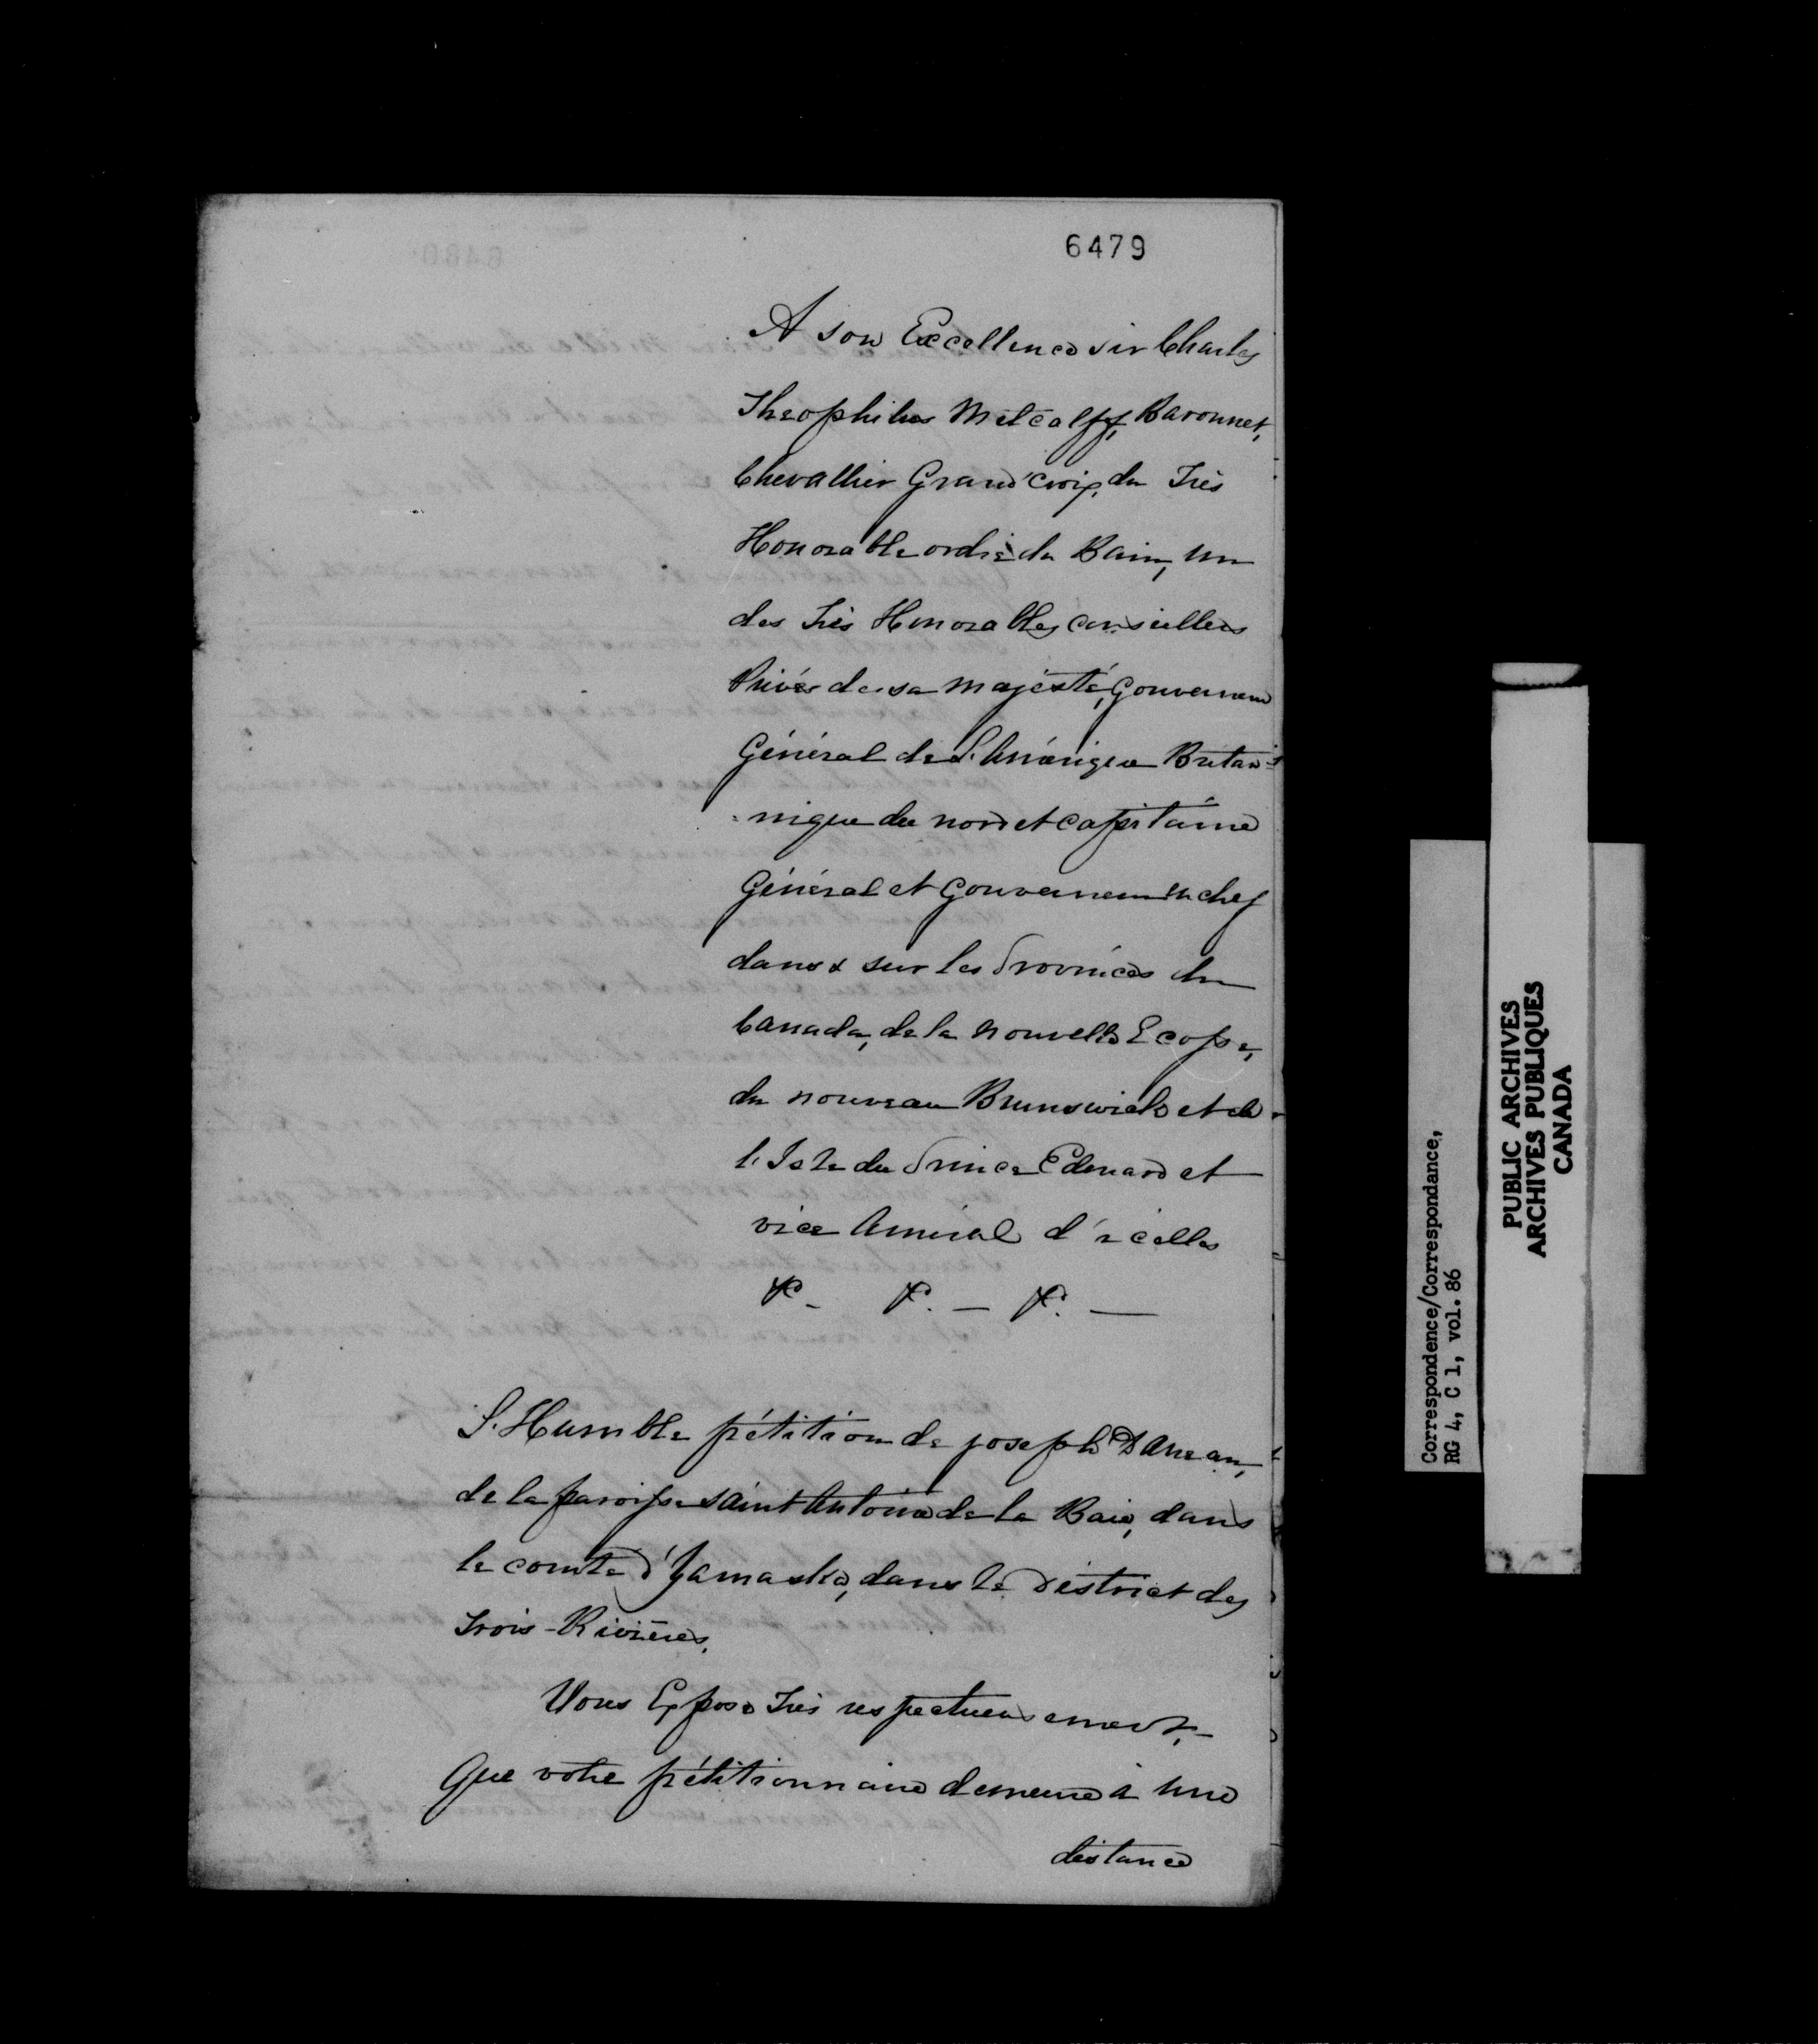 6479
A son Excellence sir Charles
Theophilus Metcalfe, Baronnet,
Chevallier Grand'croix, du Très
Honorable ordre du Bain, un
des Très Honorables conseillers
Privés de sa majesté, Gouverneur
Général de L'Amérique Britan-
-nique du nord et capitaine
Général et Gouverneur en chef
dans & sur les Provinces du
Canada, de la nouvelle Ecosse,
du nouveau Brunswick et de
l'Isle du Prince Edouard et
vice Amiral d'icelles
&. - &. — &. —
L'Humble pétition de joseph
de la paroisse saint Antoine de la Baie, dans
le comté d'Yamaska, dans le District des
Trois-Rivières.
Vous Expose Très respectueusement,-
Que votre pétitionnaire demeure à une
distance
Correspondence/Correspondance,
RG 4, C 1, vol. 86
PUBLIC ARCHIVES
ARCHIVES PUBLIQUES
CANADA